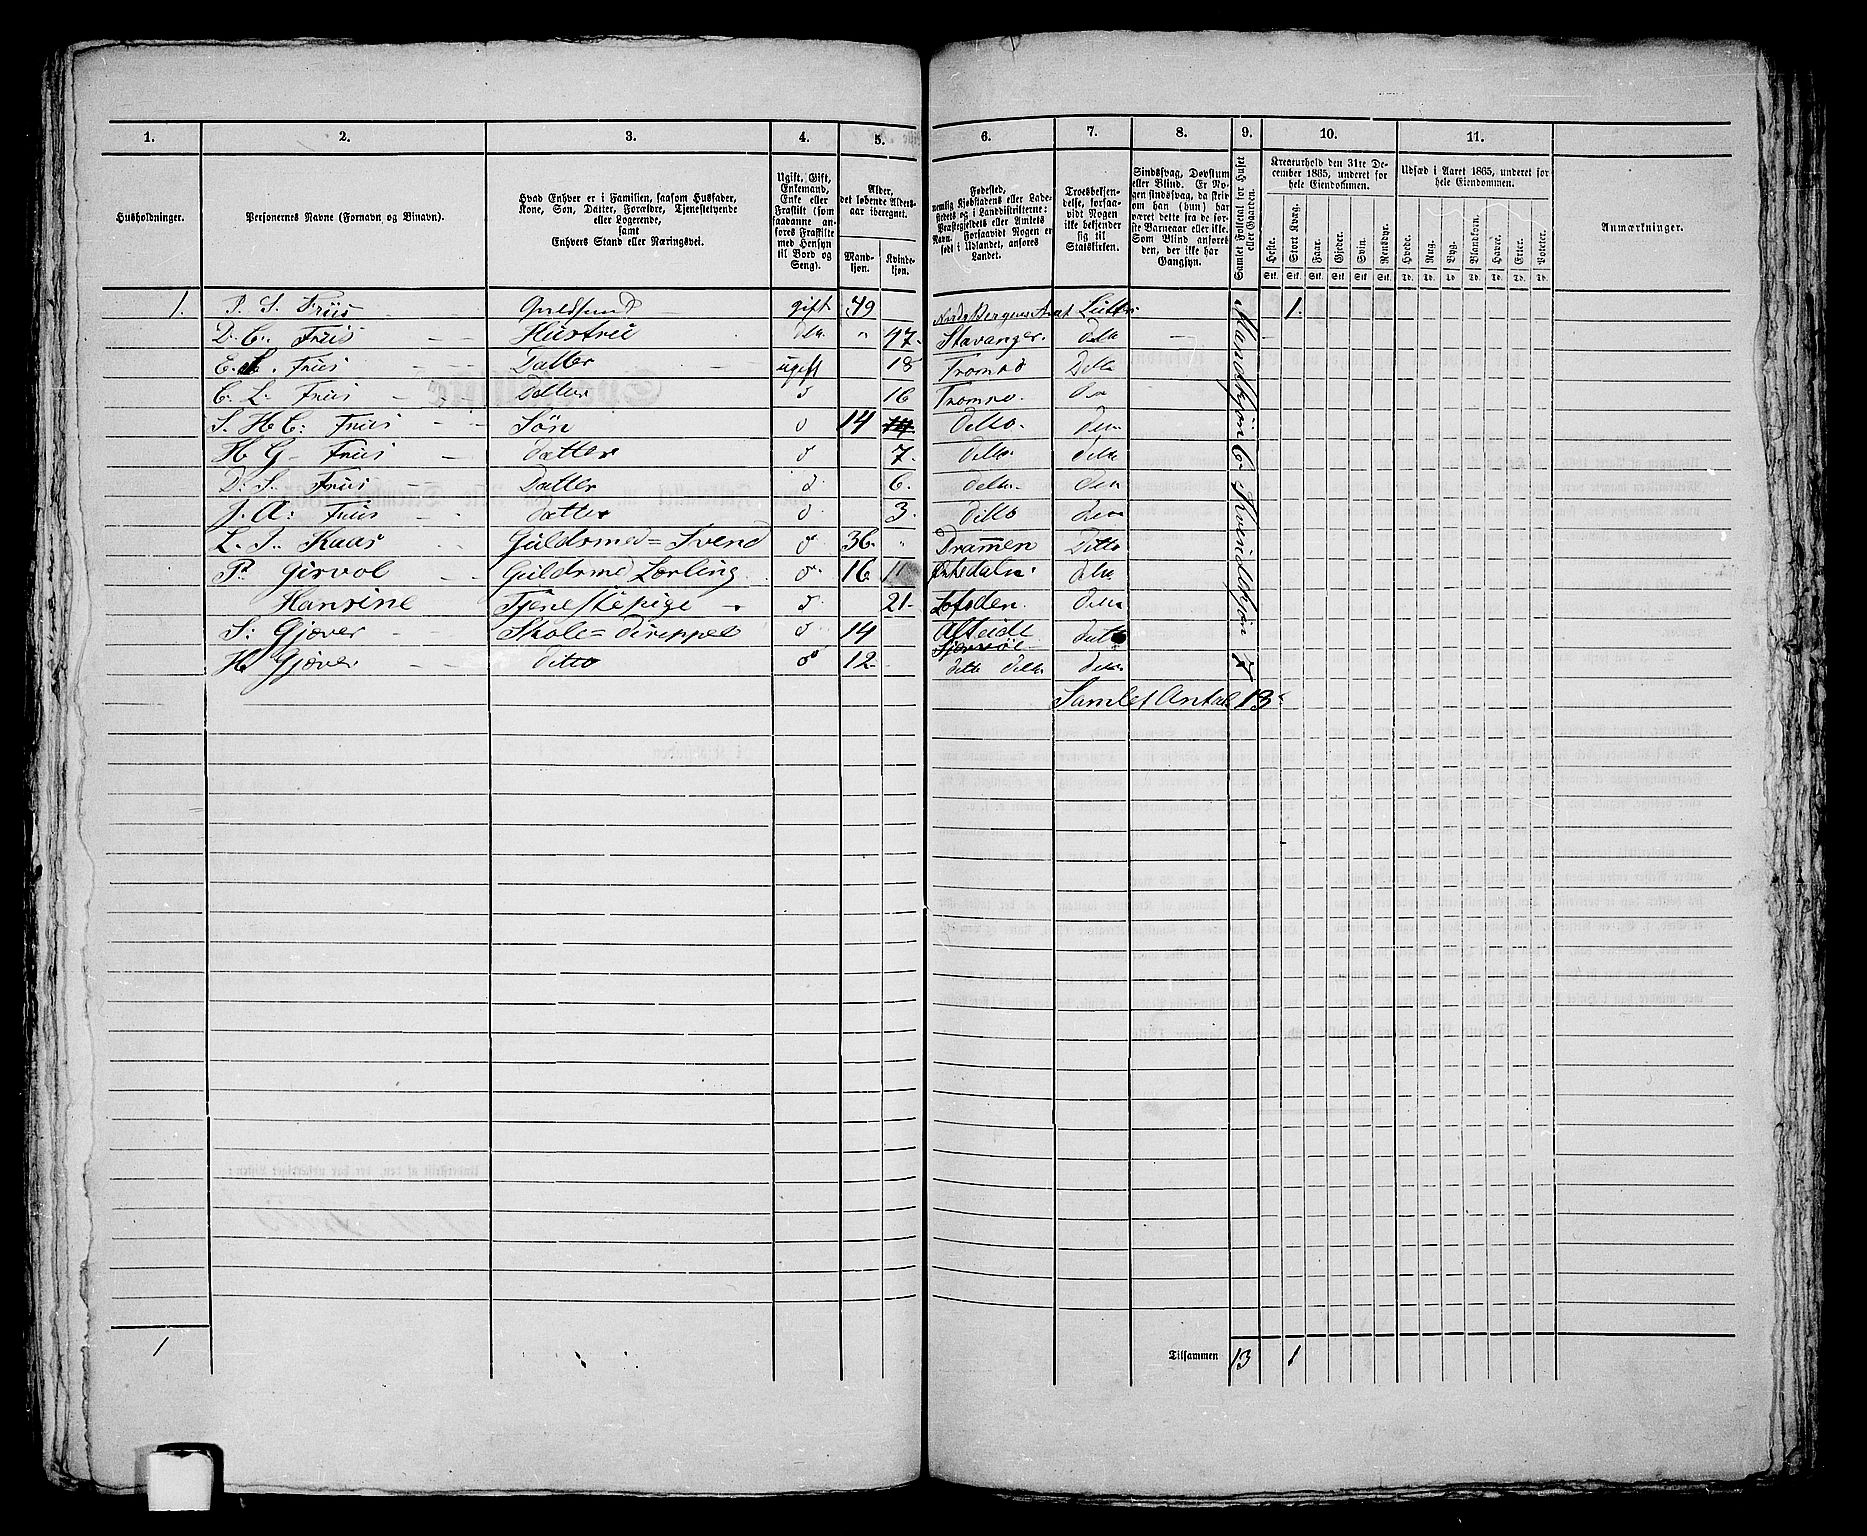 1. 2. 3. 4. 5. 6. 7. 8. 9. 10. 11.
Husholdninger. Personernes Navne (Fornavn og Binavn).
Hvad Enhver er i Familien, saasom Husfader,
Kone, Søn, Datter, Forældre, Tjenestetyende
eller Logerende,
samt
Enhvers Stand eller Næringsvei.
Ugift, Gift,
Enkemand,
Enke eller
Fraskilt (som
saadanne an-
føres Fraskilte
med Hensyn
til Bord og
Seng).
Alder,
det løbende Alders-
aar iberegnet.
Mand-
kjøn. Kvinde-
kjøn.
Fødested,
nemlig Kjøbstadens eller Lade-
stedets og i Landdistrikterne:
Præstegjeldets eller Amtets
Navn. Forsaavidt Nogen er
født i Udlandet, anføres
Landet.
Troesbekjen-
delse, forsaa-
vidt Nogen
ikke bekjender
sig til
Statskirken.
Sindssvag, Døvstum
eller Blind. Er No-
gen sindssvag, da skriv
om han (hun) har
været dette fra de for-
ste Barneaar eller ikke.
Som Blind anføres
den, der ikke har
Gangsyn.
Samlet Folketal for Huset
eller Gaarden.
Kreaturhold den 31te De-
cember 1865, underet for
hele Eiendommen.
Heste. Stort Kvæg. Faar. Gjeder. Svin. Rensdyr.
Stk. Stk. Stk. Stk. Stk. Stk.
Udsæd i Aaret 1865, underet for
hele Eiendommen.
Hvede. Rug. Byg. Blandkorn. Havre. Erter. Poteter.
Td. Td. Td. Td. Td. Td. Td.
Anmærkninger.
1. P. S. Friis gift 49 1.
D. C. Friis Hustrue dtto " 47. Stavanger. ditto
Friis Datter ugift 18 Tromsø Ditto
C. L. Friis Datter d 16 Tromsø. dto
S. H C: Friis Søn d 14 14 ditto. ditto
H G Friis datter d 7. ditto ditto
D. S. Friis Datter d 6. ditto ditto
J. A: Friis datter d 3. ditto ditto
L. J. Kaas Guldsmed=Svend d 36. " Drammen Ditto
P. Girvol Guldsmed Lærling d. 16 11 Orkedalen. ditto
Hansine Tjenestepige d. 21. Lofoden. ditto
S: Gjæver Skole=Discippel d 14 Alteidet ditto
Sjervøe
H Gjæver ditto d 12. ditto ditto ditto
Mandkjøn 6 Kvindekjøn 7
Samlet Antal 13
1 Tilsammen 13 1